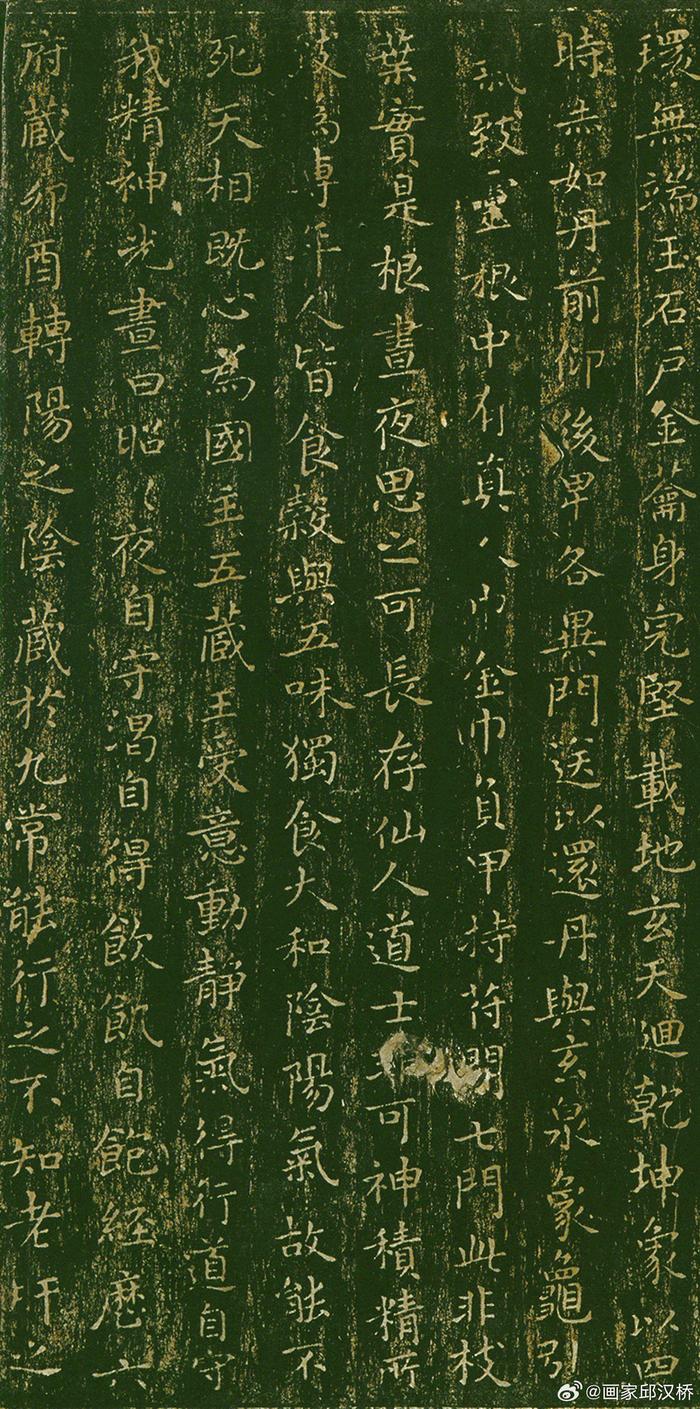 環無端玉石戶金籥身完堅載地玄天迴乾坤象以四
時赤如丹前仰後卑各異門送以還丹與玄泉象龜引
氣致靈根中有真人巾金巾負甲持符開七門此非枝
葉實是根晝夜思之可長存仙人道士可神積精所
致為專年人皆食穀與五味獨食大和陰陽氣故能不
死天相既心為國主五藏王受意動靜氣得行道自守
我精神光晝日昭〻夜自守渴自得飲飢自飽経歷六
府藏卯酉轉陽之陰藏於九常能行之不知老肝之
@画家邱汉桥